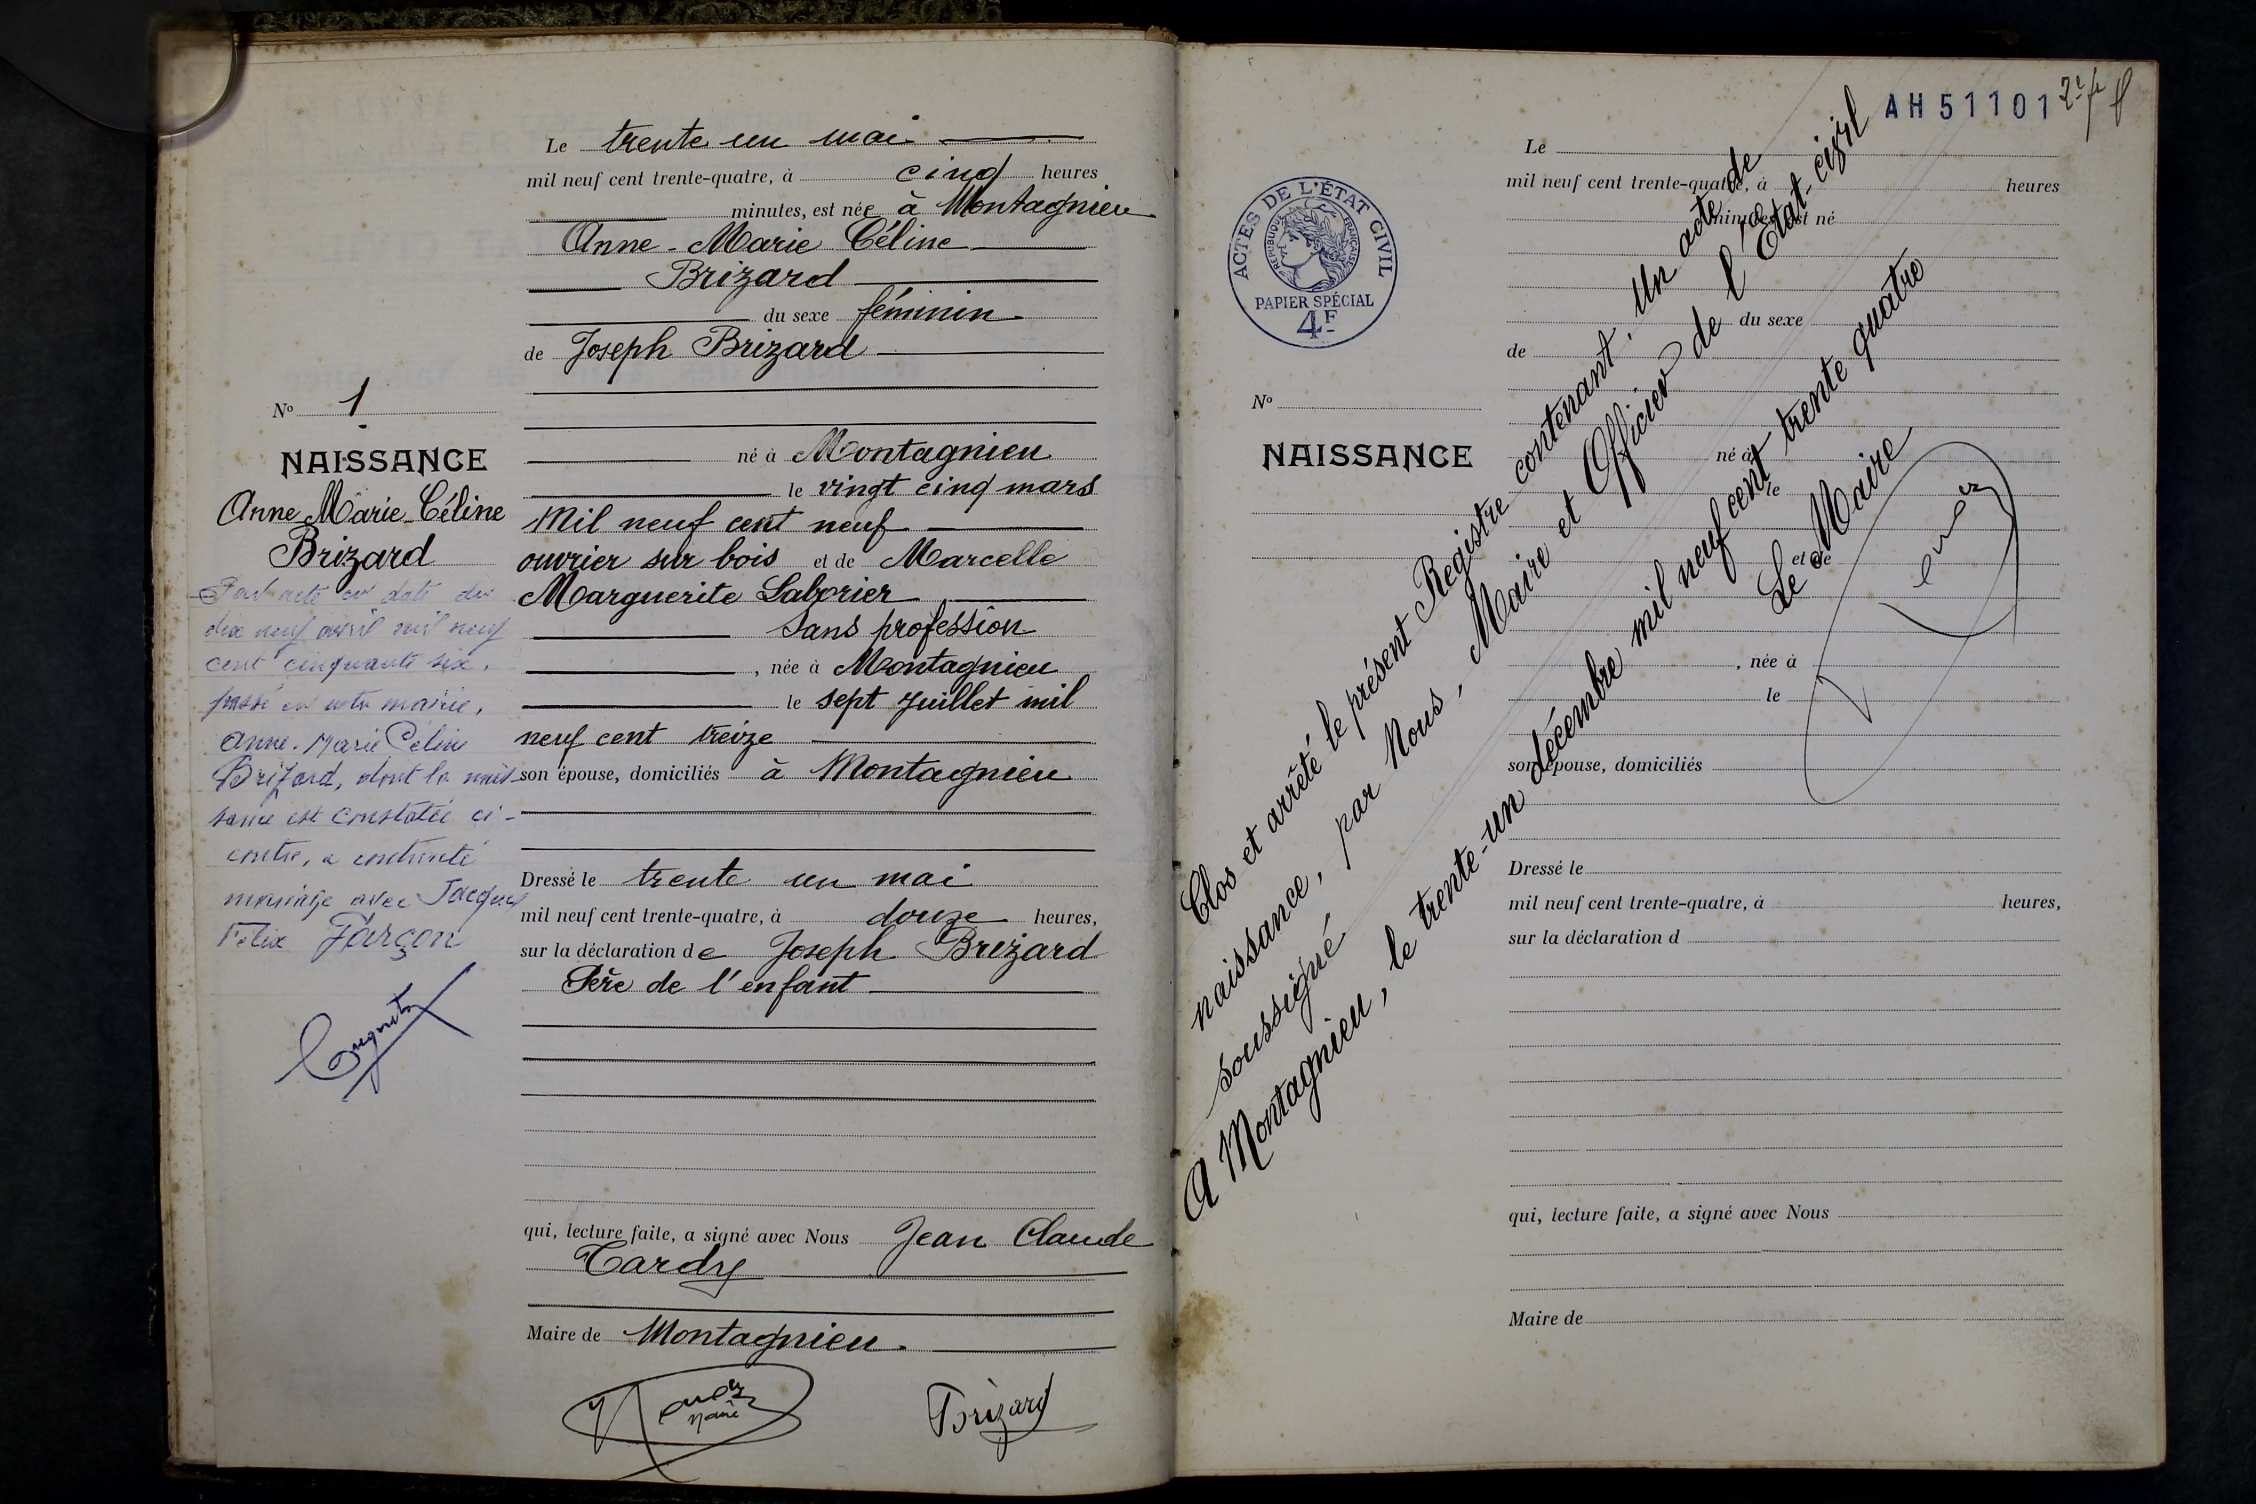 Le trente un mai
mil neuf cent trente-quatre, à cinq heures
minutes, est née à Montagnieu
Anne-Marie Céline
Brizard
du sexe féminin
de Joseph Brizard
né à Montagnieu
le vingt cinq mars
Mil neuf cent neuf
ouvrier sur bois et de Marcelle
Marguerite Laborier
Sans profession
, née à Montagnieu
le sept Juillet mil
neuf cent treize
son épouse, domiciliés à Montagnieu
Dressé le trente un mai
mil neuf cent trente-quatre, à douze heures,
sur la déclaration de Joseph Brizard
Père de l'enfant
qui, lecture faite, a signé avec Nous Jean Claude
Tardy
Maire de Montagnieu.
Brizard
No 1
NAISSANCE
Anne Marie-Céline
Brizard
Par acte en date du
dix neuf avril mil neuf
cent cinquante six,
passé en notre mairie,
Anne-Marie Céline
Brizard, dont la nais-
sance est constatée ci-
contre, a contracté
mariage avec Jacques
Félix Farçon
AH 51101
ACTES DE L'ÉTAT CIVIL
RÉPUBLIQUE FRANÇAISE
PAPIER SPÉCIAL
4F
No
NAISSANCE
Le
mil neuf cent trente-quatre, à heures
minutes, est né
du sexe
de
né à
le
et de
, née à
le
son épouse, domiciliés
Dressé le
mil neuf cent trente-quatre, à heures,
sur la déclaration d
qui, lecture faite, a signé avec Nous
Maire de
Clos et arrêté le présent Registre contenant. Un acte de
naissance, par Nous, Maire et Officier de l'Etat-civil
soussigné
A Montagnieu, le trente-un décembre mil neuf cent trente quatre
Le Maire